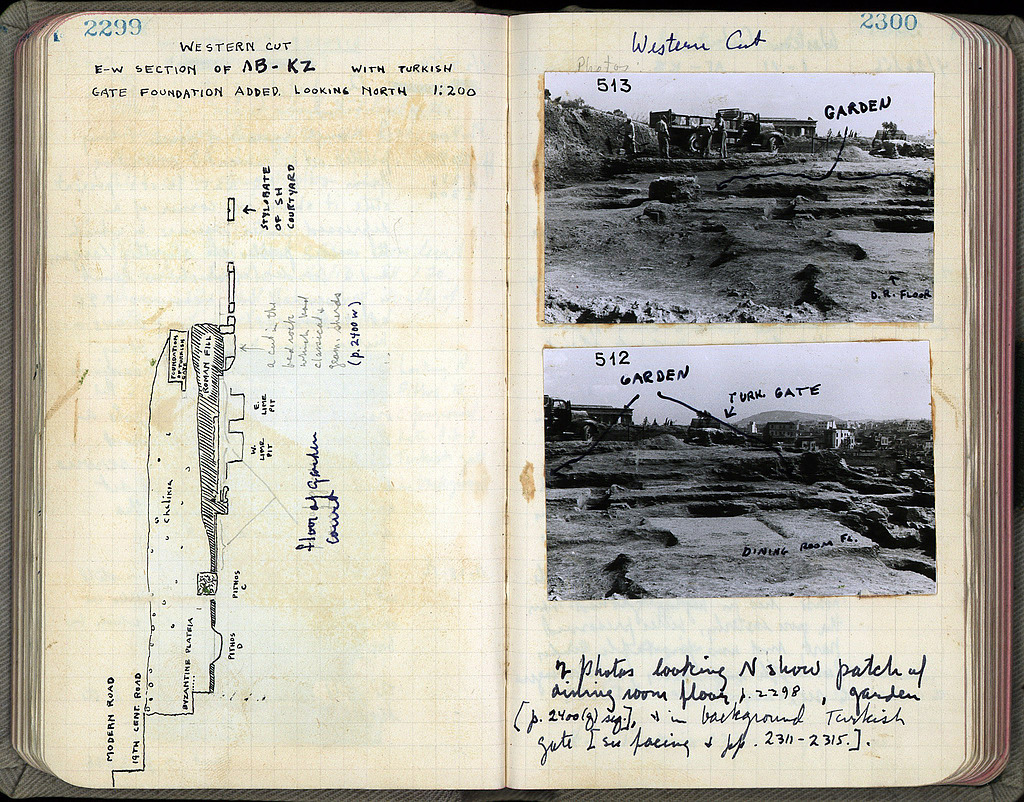 2299
WESTERN CUT
E-W SECTION OF ΛB-KZ WITH TURKISH
GATE FOUNDATION ADDED. LOOKING NORTH 1:200
STYLOBATE
OF SH
COURTYARD
a cut in the
bedrock
which had
classical &
geom. sherds
(p. 2400 w)
FOUNDATION
OF TURKISH
GATE
ROMAN FILL
E.
LIME
PIT
W.
LIME
PIT
floor of garden
court
Chalikia
PITHOS
C
PITHOS
D
BYZANTINE PLATEIA
19TH CENT. ROAD
MODERN ROAD
2300
Western Cut
Photos
513
GARDEN
D.R. FLOOR
512
GARDEN
TURK. GATE
DINING ROOM FL.
2 photos looking N show patch of
dining room floor, p. 2298, garden
[p. 2400(g) seq.], & in background Turkish
gate [see facing & pp. 2311-2315.].